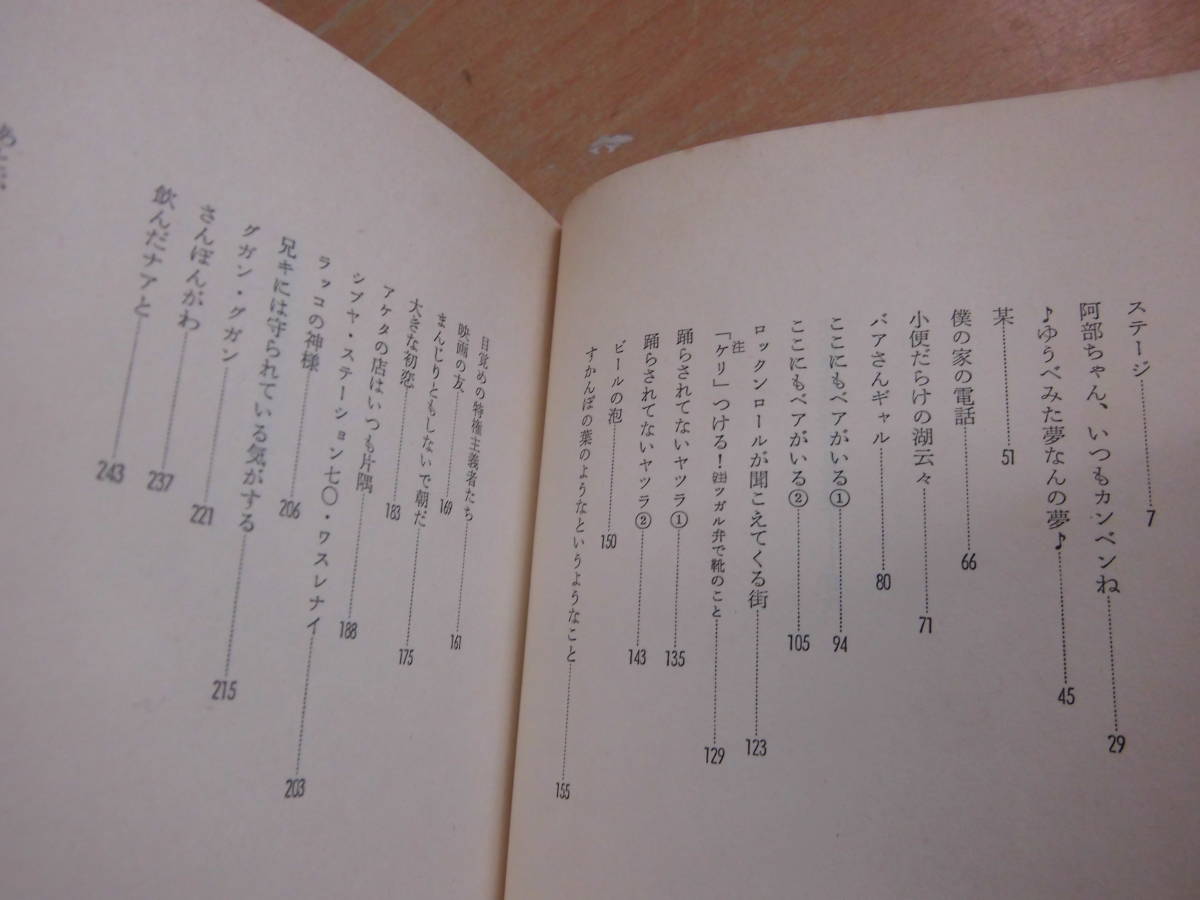 ステージ……7
阿部ちゃん、いつもカンベンね……29
♪ゆうべみた夢なんの夢♪……45
某……51
僕の家の電話……66
小便だらけの湖云々……71
バアさんギャル……80
ここにもベアがいる①……94
ここにもベアがいる②……105
ロックンロールが聞こえてくる街……123
「ケリ」つける！ 注ツガル弁で靴のこと……129
注
踊らされてないヤツラ①……135
踊らされてないヤツラ②……143
ビールの泡……150
すかんぽの葉のようなというようなこと……155
目覚めの特権主義者たち……161
映画の友……169
まんじりともしないで朝だ……175
大きな初恋……183
アケタの店はいつも片隅……188
シブヤ・ステーション七〇・ワスレナイ……203
ラッコの神様……206
兄キには守られている気がする……215
グガン・グガン……221
さんぼんがわ……237
飲んだナアと……243